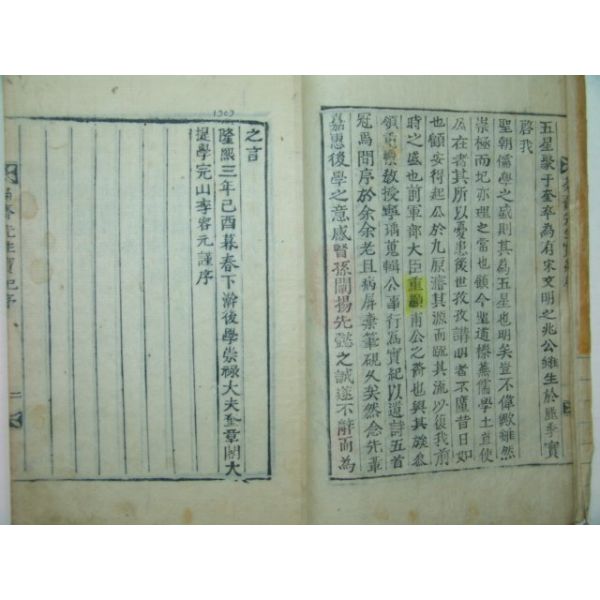 五星聚于奎卒為有宋文明之兆公雖生於麗季實
啓我
聖朝儒學之盛則其為五星也明矣豈不偉歟雖然
崇極而圮亦理之當也顧今聖道榛蕪儒學土直使
公在者其所以憂患後世孜孜講明者不廑昔日如
也顧安得起公於九原濬其源而疏其流以復我前
時之盛也前軍部大臣重顯甫公之裔也與其族
領 敎授寧瑀蒐輯公事行為實紀以遺詩五首
冠焉問序於余余老且病屏棄筆硯久矣然念先輩
嘉惠後學之意感賢孫闡揚先懿之誠遂不辭而為
1909
之言
隆熙三年己酉暮春下澣後學崇祿大夫奎章閣大
提學完山李容元謹序
先生實紀序
二